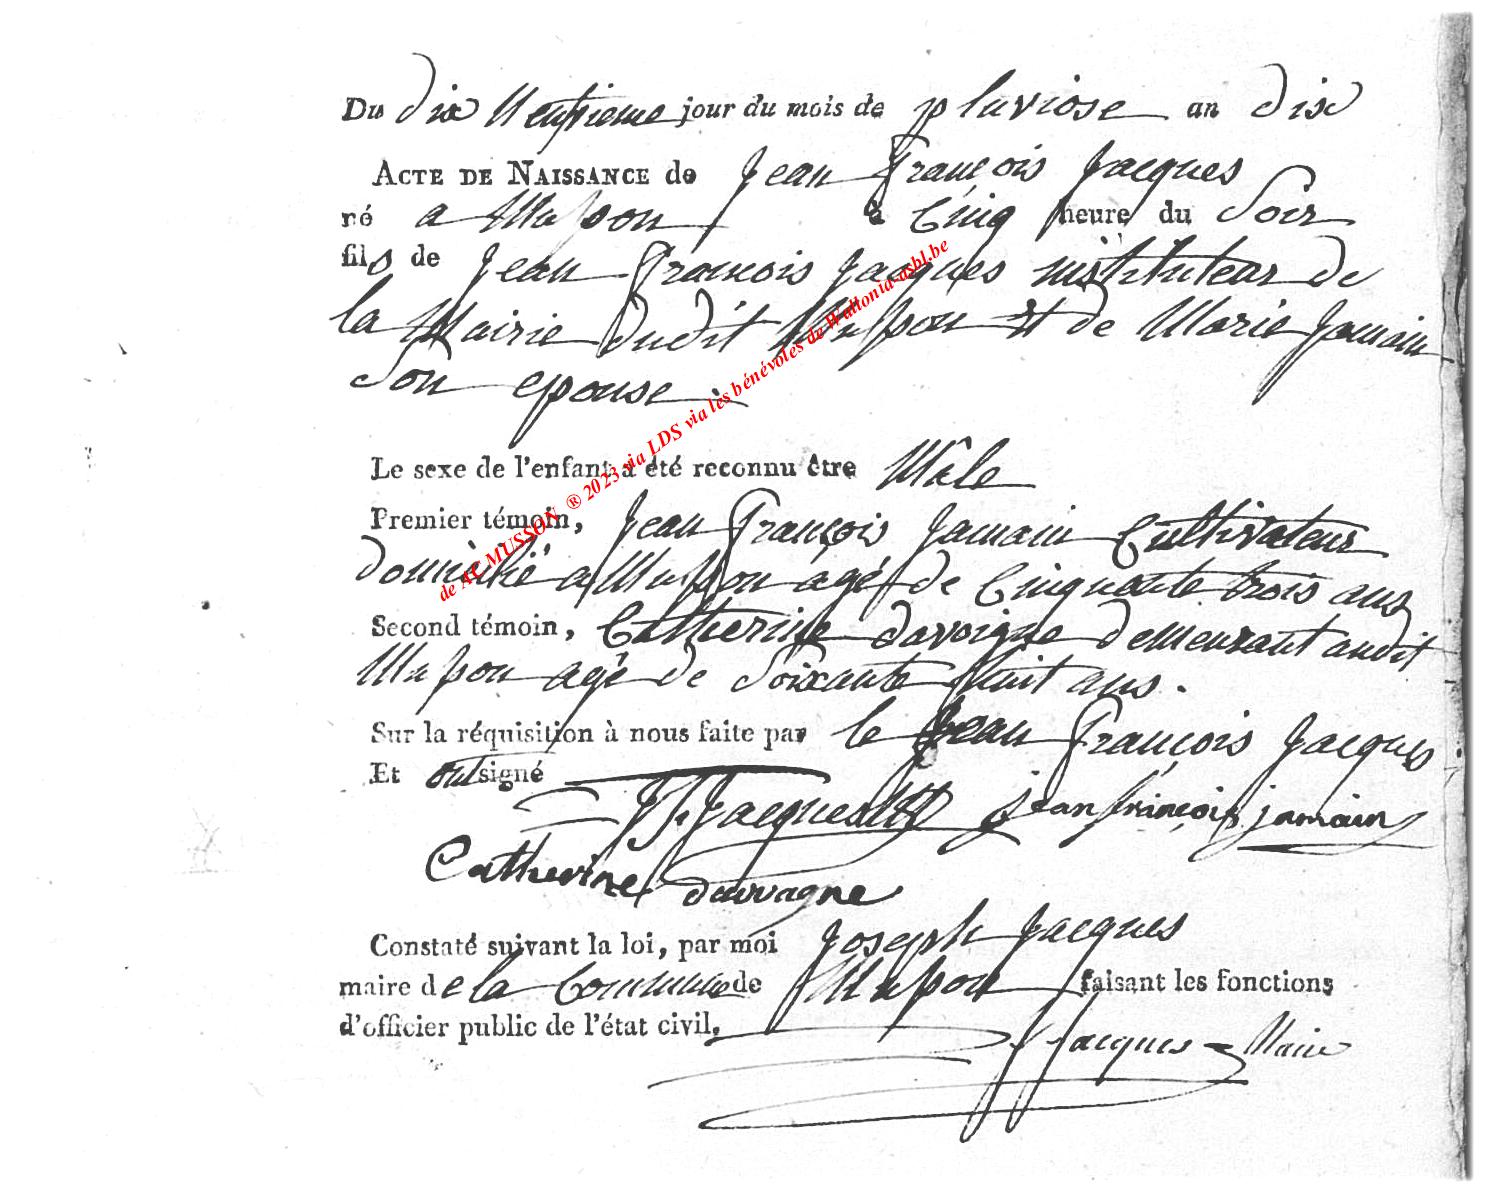 Du dix Neufvieme jour du mois de pluviose an dix
ACTE DE NAISSANCE de Jean François Jacques
né a Musson à Cinq heure du Soir
fils de Jean François Jacques instituteur de
la Mairie dudit Musson Et de Marie Jamain
Son epouse.
Le sexe de l'enfant a été reconnu être Mâle
Premier témoin, Jean François Jamain Cultivateur
domicilié a Musson agé de Cinquante trois ans
Second témoin, Catherine davoigne demeurant audit
Musson agé de Soixante huit ans.
Sur la réquisition à nous faite par le Jean François Jacques
Et ont signé
J. f. Jacques jean françois jamain
Catherine dauvagne
Constaté suivant la loi, par moi Joseph Jacques
maire de la Commune de Musson faisant les fonctions
d'officier public de l'état civil.
J Jacques Maire
de AC MUSSON ® 2023 via LDS via les bénévoles de Wallonia-asbl.be